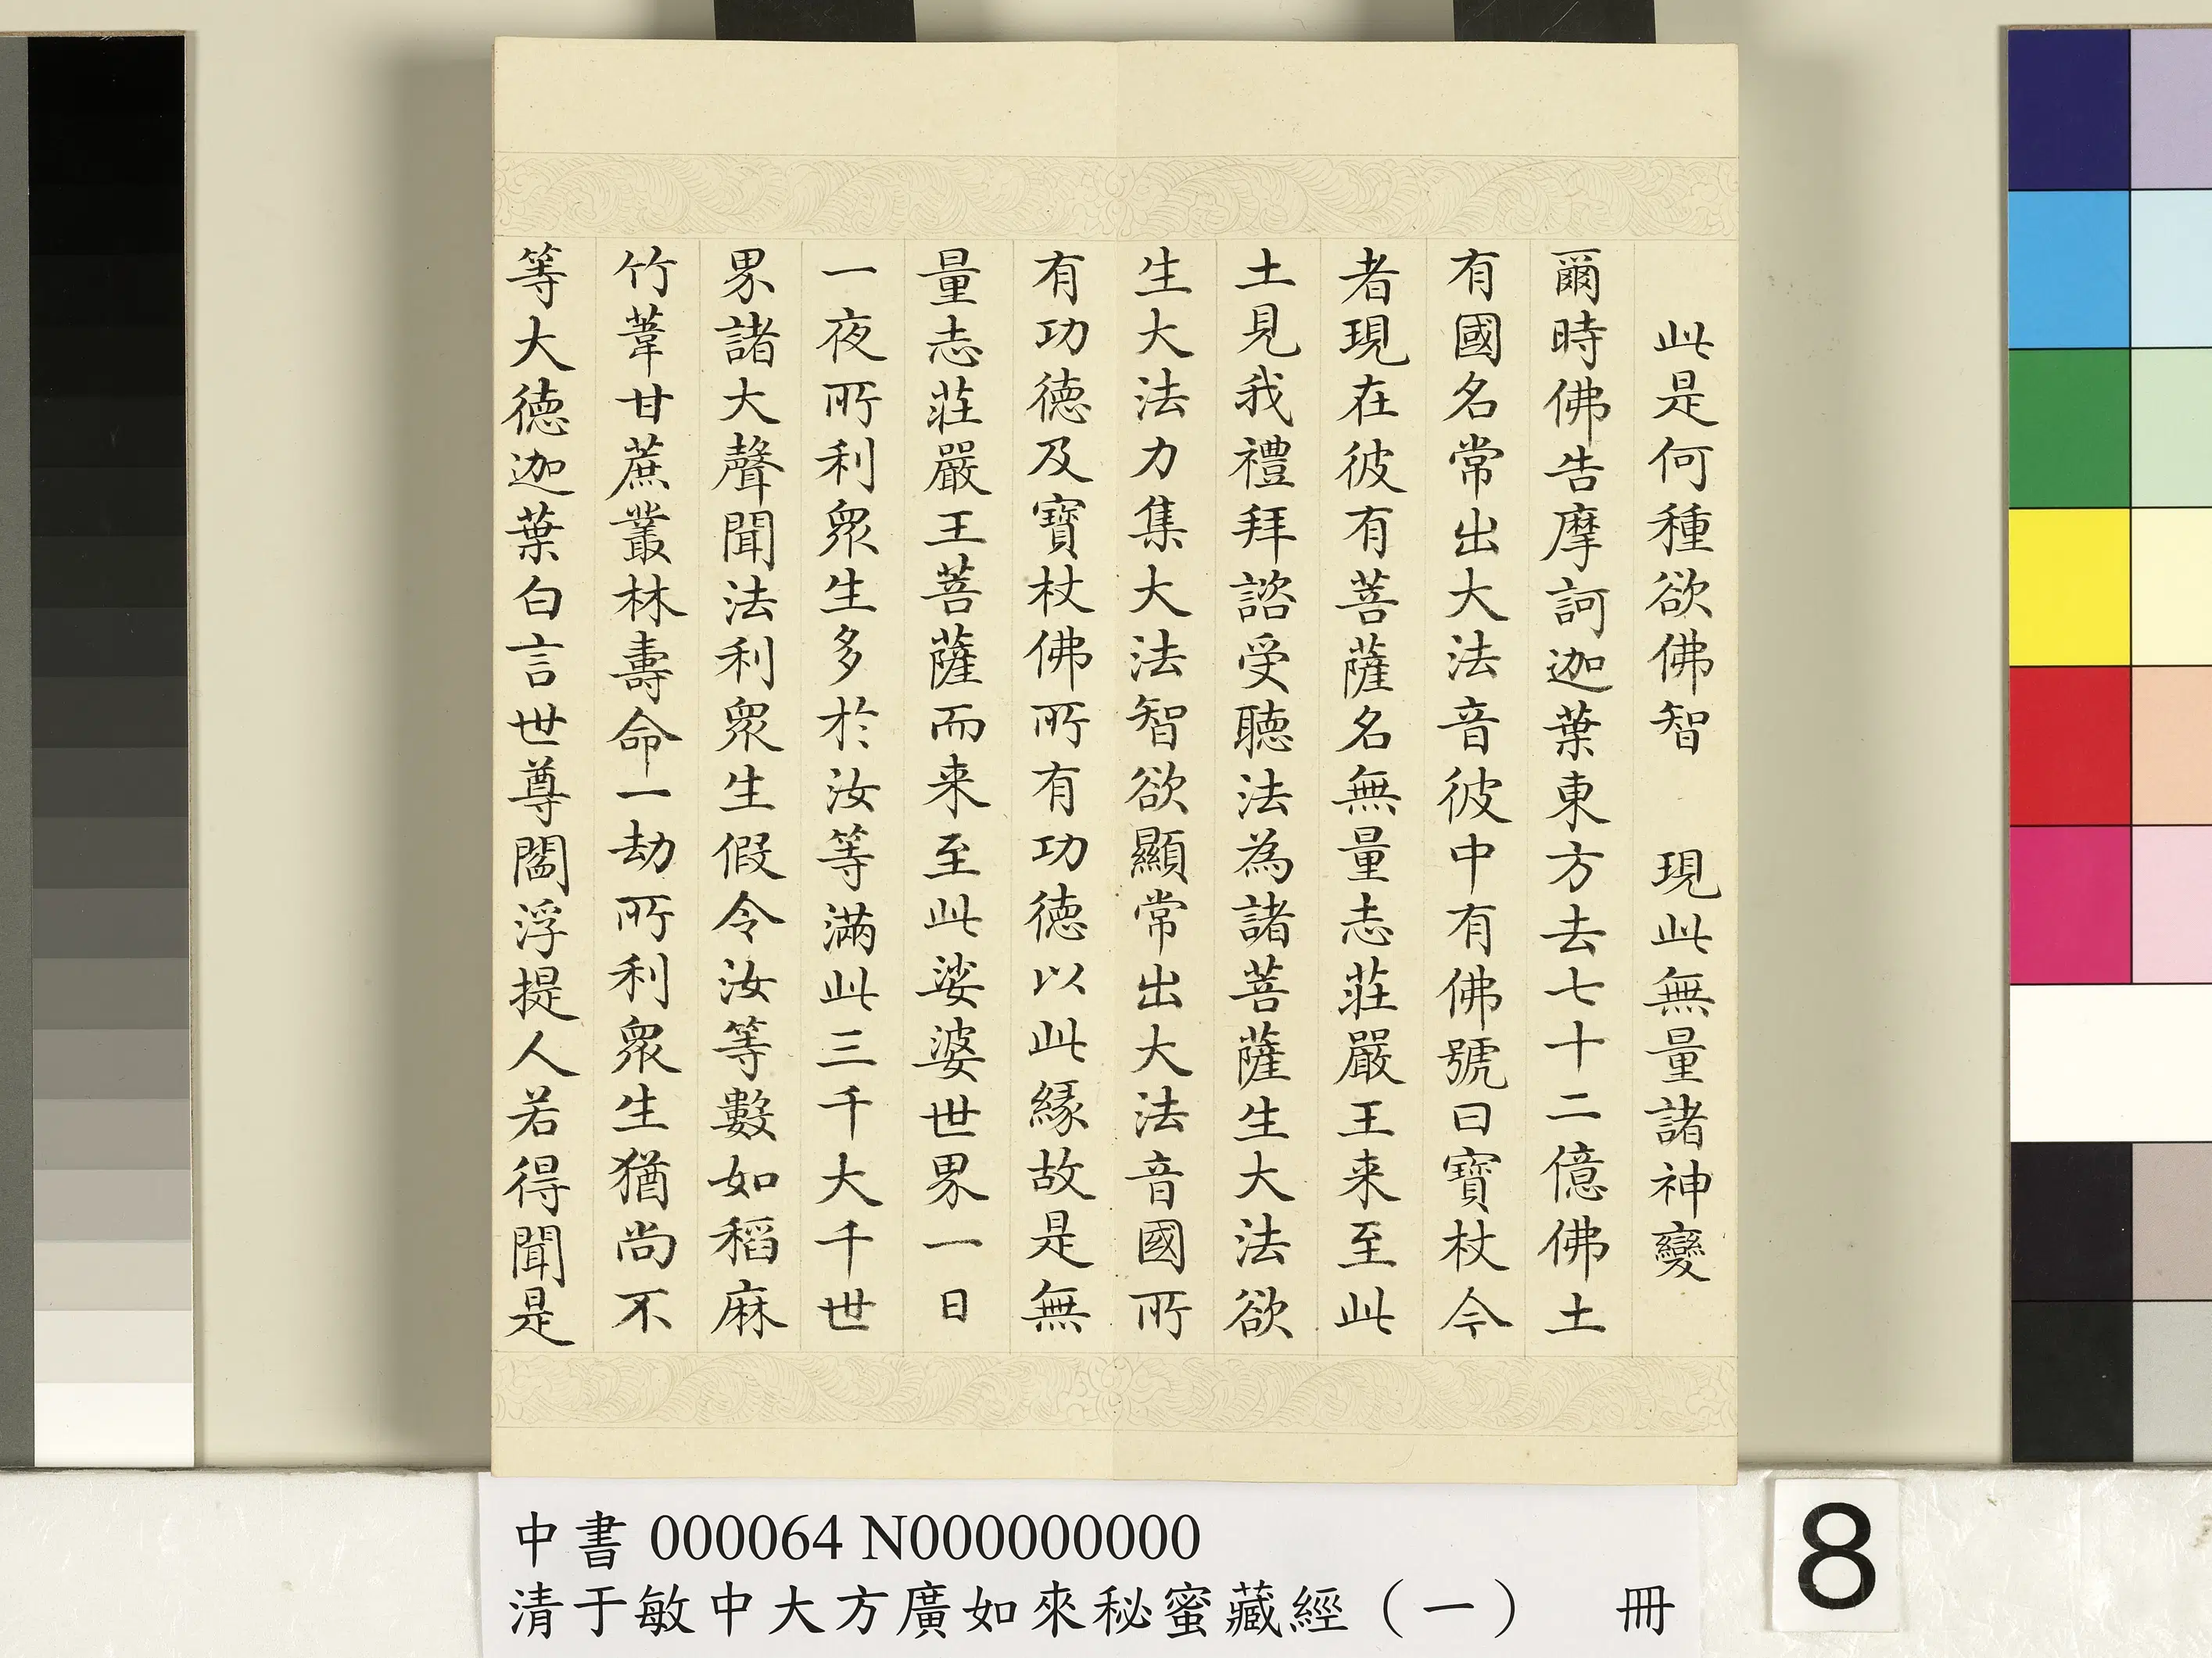 此是何種欲佛智　現此無量諸神變
爾時佛告摩訶迦葉東方去七十二億佛土
有國名常出大法音彼中有佛號曰寶杖今
者現在彼有菩薩名無量志莊嚴王来至此
土見我禮拜諮受聽法為諸菩薩生大法欲
生大法力集大法智欲顯常出大法音國所
有功德及寶杖佛所有功德以此緣故是無
量志莊嚴王菩薩而来至此娑婆世界一日
一夜所利衆生多於汝等滿此三千大千世
界諸大聲聞法利衆生假令汝等數如稻麻
竹葦甘蔗叢林壽命一劫所利衆生猶尚不
等大德迦葉白言世尊閻浮提人若得聞是
中書 000064 N000000000
清于敏中大方廣如來秘蜜藏經（一）　冊
8